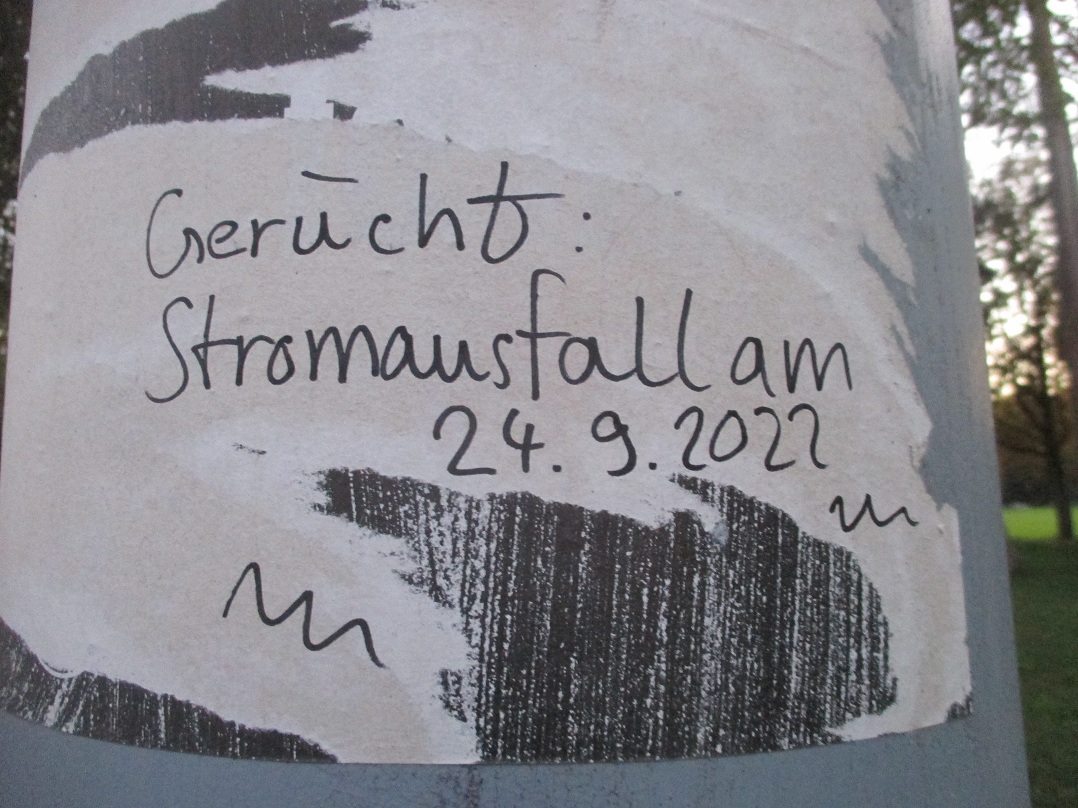 Gerücht:
Stromausfall am
24.9.2022